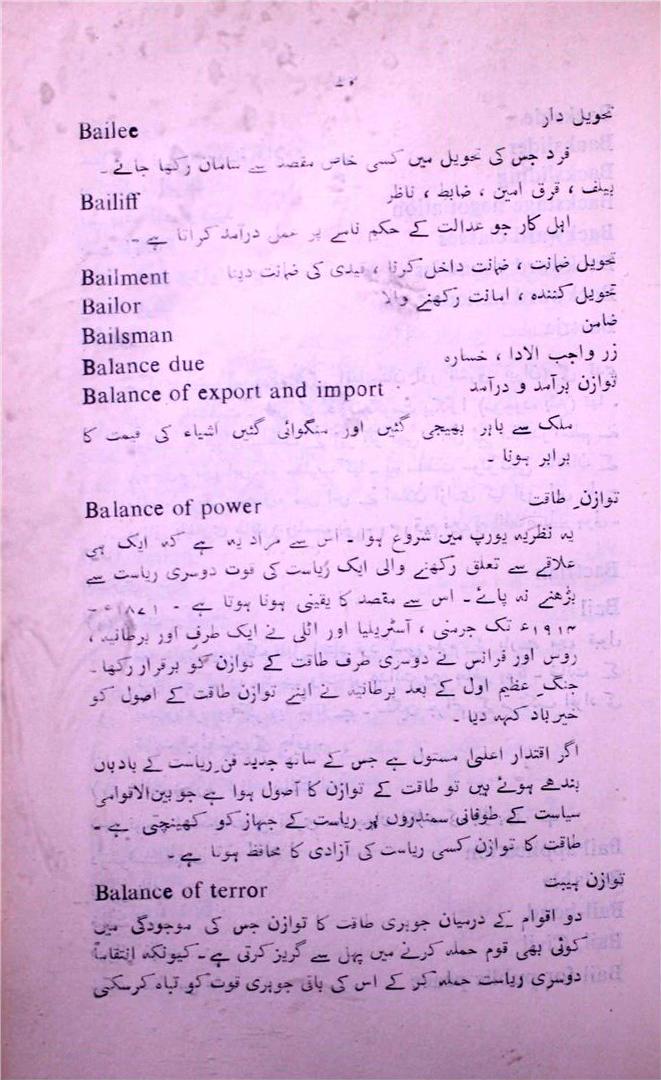 Bailee تحویل دار
فرد جس کی تحویل میں کسی خاص مقصد سے سامان رکھا جائے ۔
Bailiff بیلف ، قرق امین ، ضابط ، ناظر
اہل کار جو عدالت کے حکم نامے پر عمل درآمد کراتا ہے ۔
Bailment تحویل ضمانت ، ضمانت داخل کرنا ، قیدی کی ضمانت دینا
Bailor تحویل کنندہ ، امانت رکھنے والا
Bailsman ضامن
Balance due زر واجب الادا ، خسارہ
Balance of export and import توازن برآمد و درآمد
ملک سے باہر بھیجی گئیں اور منگوائی گئیں اشیاء کی قیمت کا
برابر ہونا ۔
Balance of power توازنِ طاقت
یہ نظریہ یورپ میں شروع ہوا ۔ اس سے مراد یہ ہے کہ ایک ہی
علاقے سے تعلق رکھنے والی ایک ریاست کی قوت دوسری ریاست سے
بڑھنے نہ پائے ۔ اس سے مقصد کا یقینی ہونا ہوتا ہے ۔ ۱۸۷۱ء ۔
۱۹۱۴ء تک جرمنی ، آسٹریلیا اور اٹلی نے ایک طرف اور برطانیہ ،
روس اور فرانس نے دوسری طرف طاقت کے توازن کو برقرار رکھا ۔
جنگِ عظیم اول کے بعد برطانیہ نے اپنے توازن طاقت کے اصول کو
خیر باد کہہ دیا ۔
اگر اقتدار اعلیٰ مستول ہے جس کے ساتھ جدید فن ریاست کے بادبان
بندھے ہوئے ہیں تو طاقت کے توازن کا اصول ہوا ہے جو بین الاقوامی
سیاست کے طوفانی سمندروں پر ریاست کے جہاز کو کھینچتی ہے ۔
طاقت کا توازن کسی ریاست کی آزادی کا محافظ ہوتا ہے ۔
Balance of terror توازن ہیبت
دو اقوام کے درمیان جوہری طاقت کا توازن جس کی موجودگی میں
کوئی بھی قوم حملہ کرنے میں پہل سے گریز کرتی ہے ۔ کیونکہ انتقاماً
دوسری ریاست حملہ کر کے اس کی باقی جوہری قوت کو تباہ کرسکتی